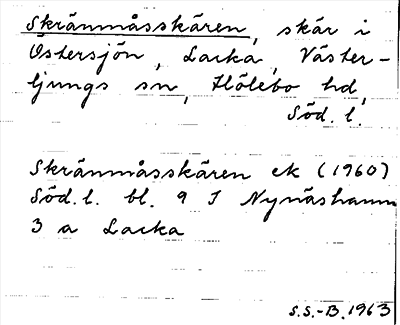 Skränmåsskären, skär i
Östersjön, Lacka, Väster-
ljungs sn, Hölebo hd,
Söd. l.
Skränmåsskären ek (1960)
Söd. l. bl. 9 I Nynäshamn
3 a Lacka
S.S.-B. 1963